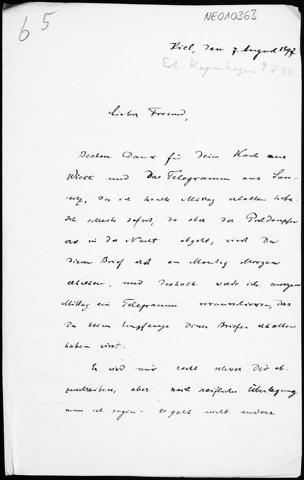 NEO10363
65
Kiel, den 7 August 1897
Erh. Kopenhagen 9.8.97
Lieber Freund,
Besten Dank für Deine Karte aus
Wieck und Das Telegramm aus
das ich heute Mittag erhalten habe.
Ich schreibe sofort, da aber der Postdampfer
erst in der Nacht abgeht, wirst Du
diesen Brief erst am Montag Morgen
erhalten, und deshalb werde ich morgen
Mittag ein Telegramm vorausschicken, das
Du beim Empfange dieses Briefes erhalten
haben wirst.
Es wird mir recht schwer Dir ab-
zuschreiben, aber nach reiflicher Überlegung
muss ich sagen: es geht nicht anders.